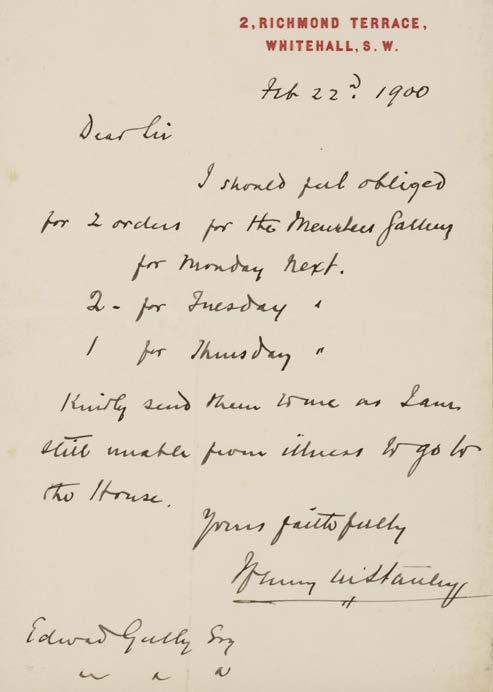 2, RICHMOND TERRACE,
WHITEHALL, S. W.
Feb 22d. 1900
Dear Sir
I should feel obliged
for 2 orders for the Members Gallery
for Monday next.
2 - for Tuesday "
1 for Thursday "
Kindly send them to me as I am
still unable from illness to go to
the House.
Yours faithfully
Henry M Stanley
Edward Gully Esq
" " "